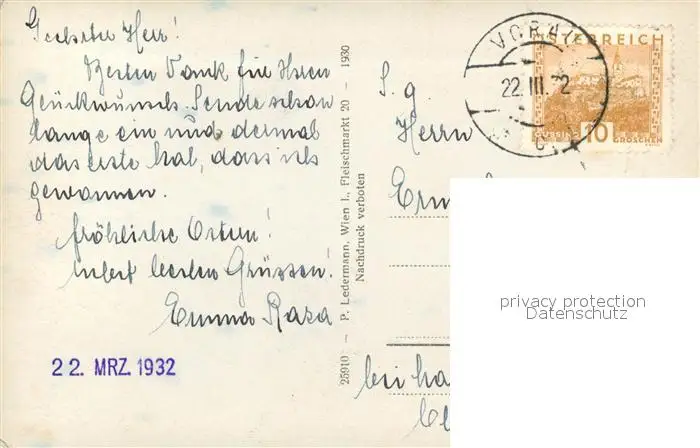 Geehrter Herr!
Besten Dank für Ihren
Glückwunsch. Sende schon
lange ein und dermal
das erste Mal, dass ich
gewonnen.
fröhliche Ostern!
nebst besten Grüssen!
Emma Rasa
22. MRZ. 1932
25910 – P. Ledermann, Wien I., Fleischmarkt 20 – 1930
Nachdruck verboten
VORAU
22. III. 32
ÖSTERREICH
GÜSSING 10 GROSCHEN
S. g.
Herrn
bei
privacy protection
Datenschutz